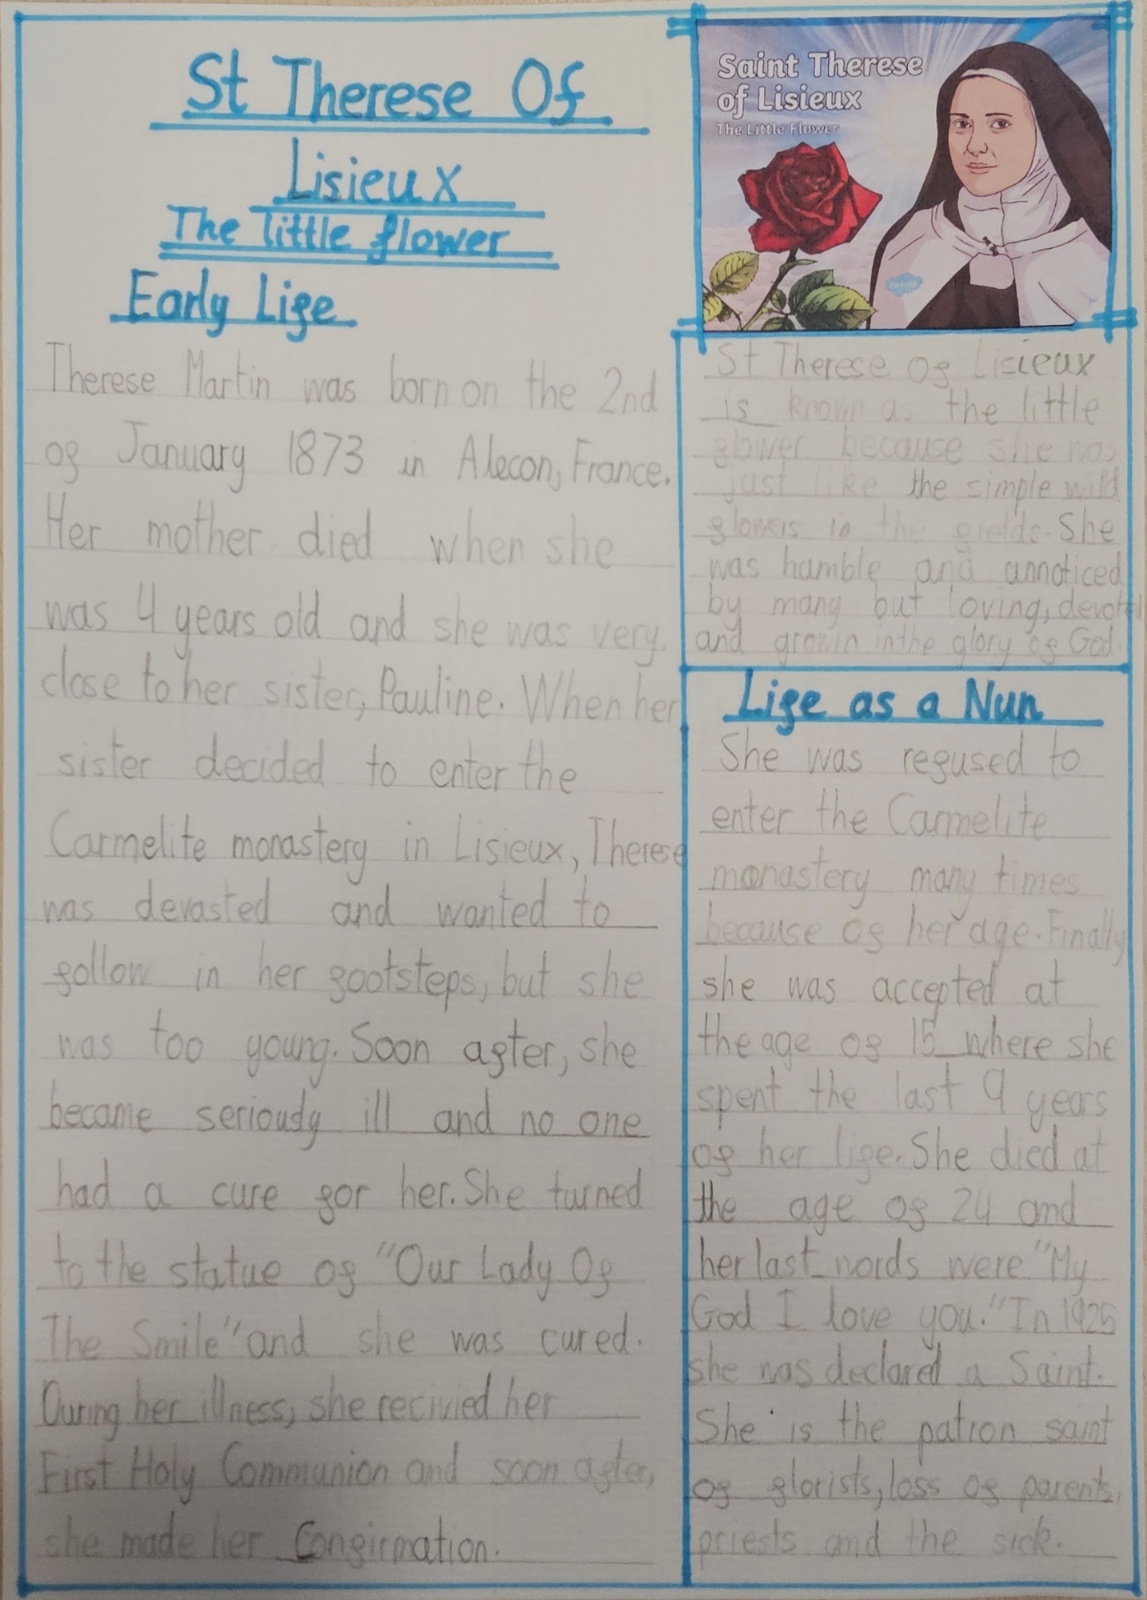 St Therese Of
Lisieux
The little flower
Early Life
Therese Martin was born on the 2nd
of January 1873 in Alecon, France.
Her mother died when she
was 4 years old and she was very
close to her sister, Pauline. When her
sister decided to enter the
Carmelite monastery in Lisieux, Therese
was devasted and wanted to
follow in her footsteps, but she
was too young. Soon after, she
became seriously ill and no one
had a cure for her. She turned
to the statue of "Our Lady Of
The Smile" and she was cured.
During her illness, she recivied her
First Holy Communion and soon after,
she made her Confirmation.
Saint Therese
of Lisieux
The Little Flower
twinkl
St Therese of Lisieux
is known as the little
flower because she was
just like the simple wild
flowers in the fields. She
was humble and unnoticed
by many but loving, devoted
and growin in the glory of God.
Life as a Nun
She was refused to
enter the Carmelite
monastery many times
because of her age. Finally
she was accepted at
the age of 15 where she
spent the last 9 years
of her life. She died at
the age of 24 and
her last words were "My
God I love you." In 1925
she was declared a Saint.
She is the patron saint
of florists, loss of parents,
priests and the sick.